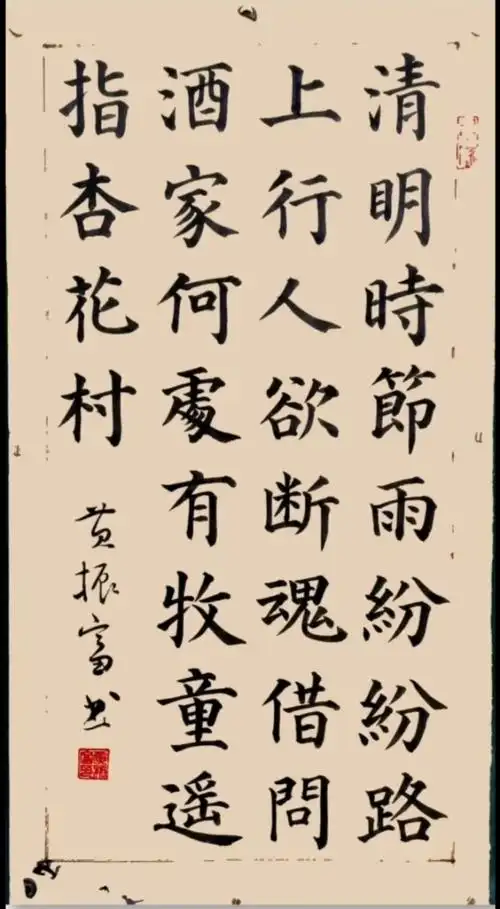 清明時節雨紛紛路
上行人欲断魂借問
酒家何處有牧童遥
指杏花村
黄振富书